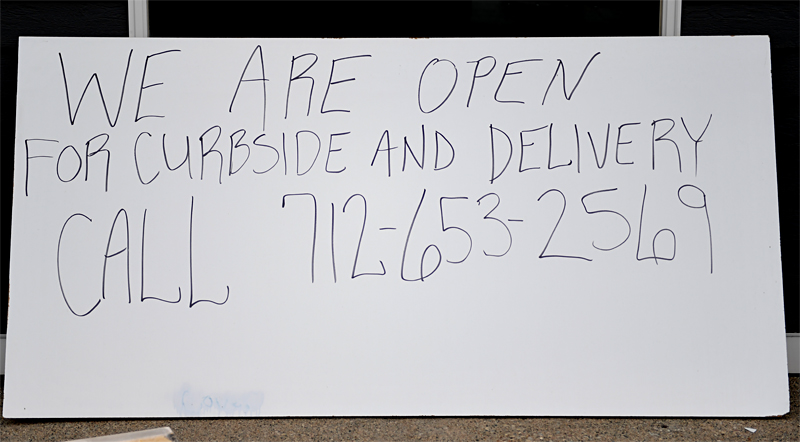 WE ARE OPEN
FOR CURBSIDE AND DELIVERY
CALL 712-653-2569